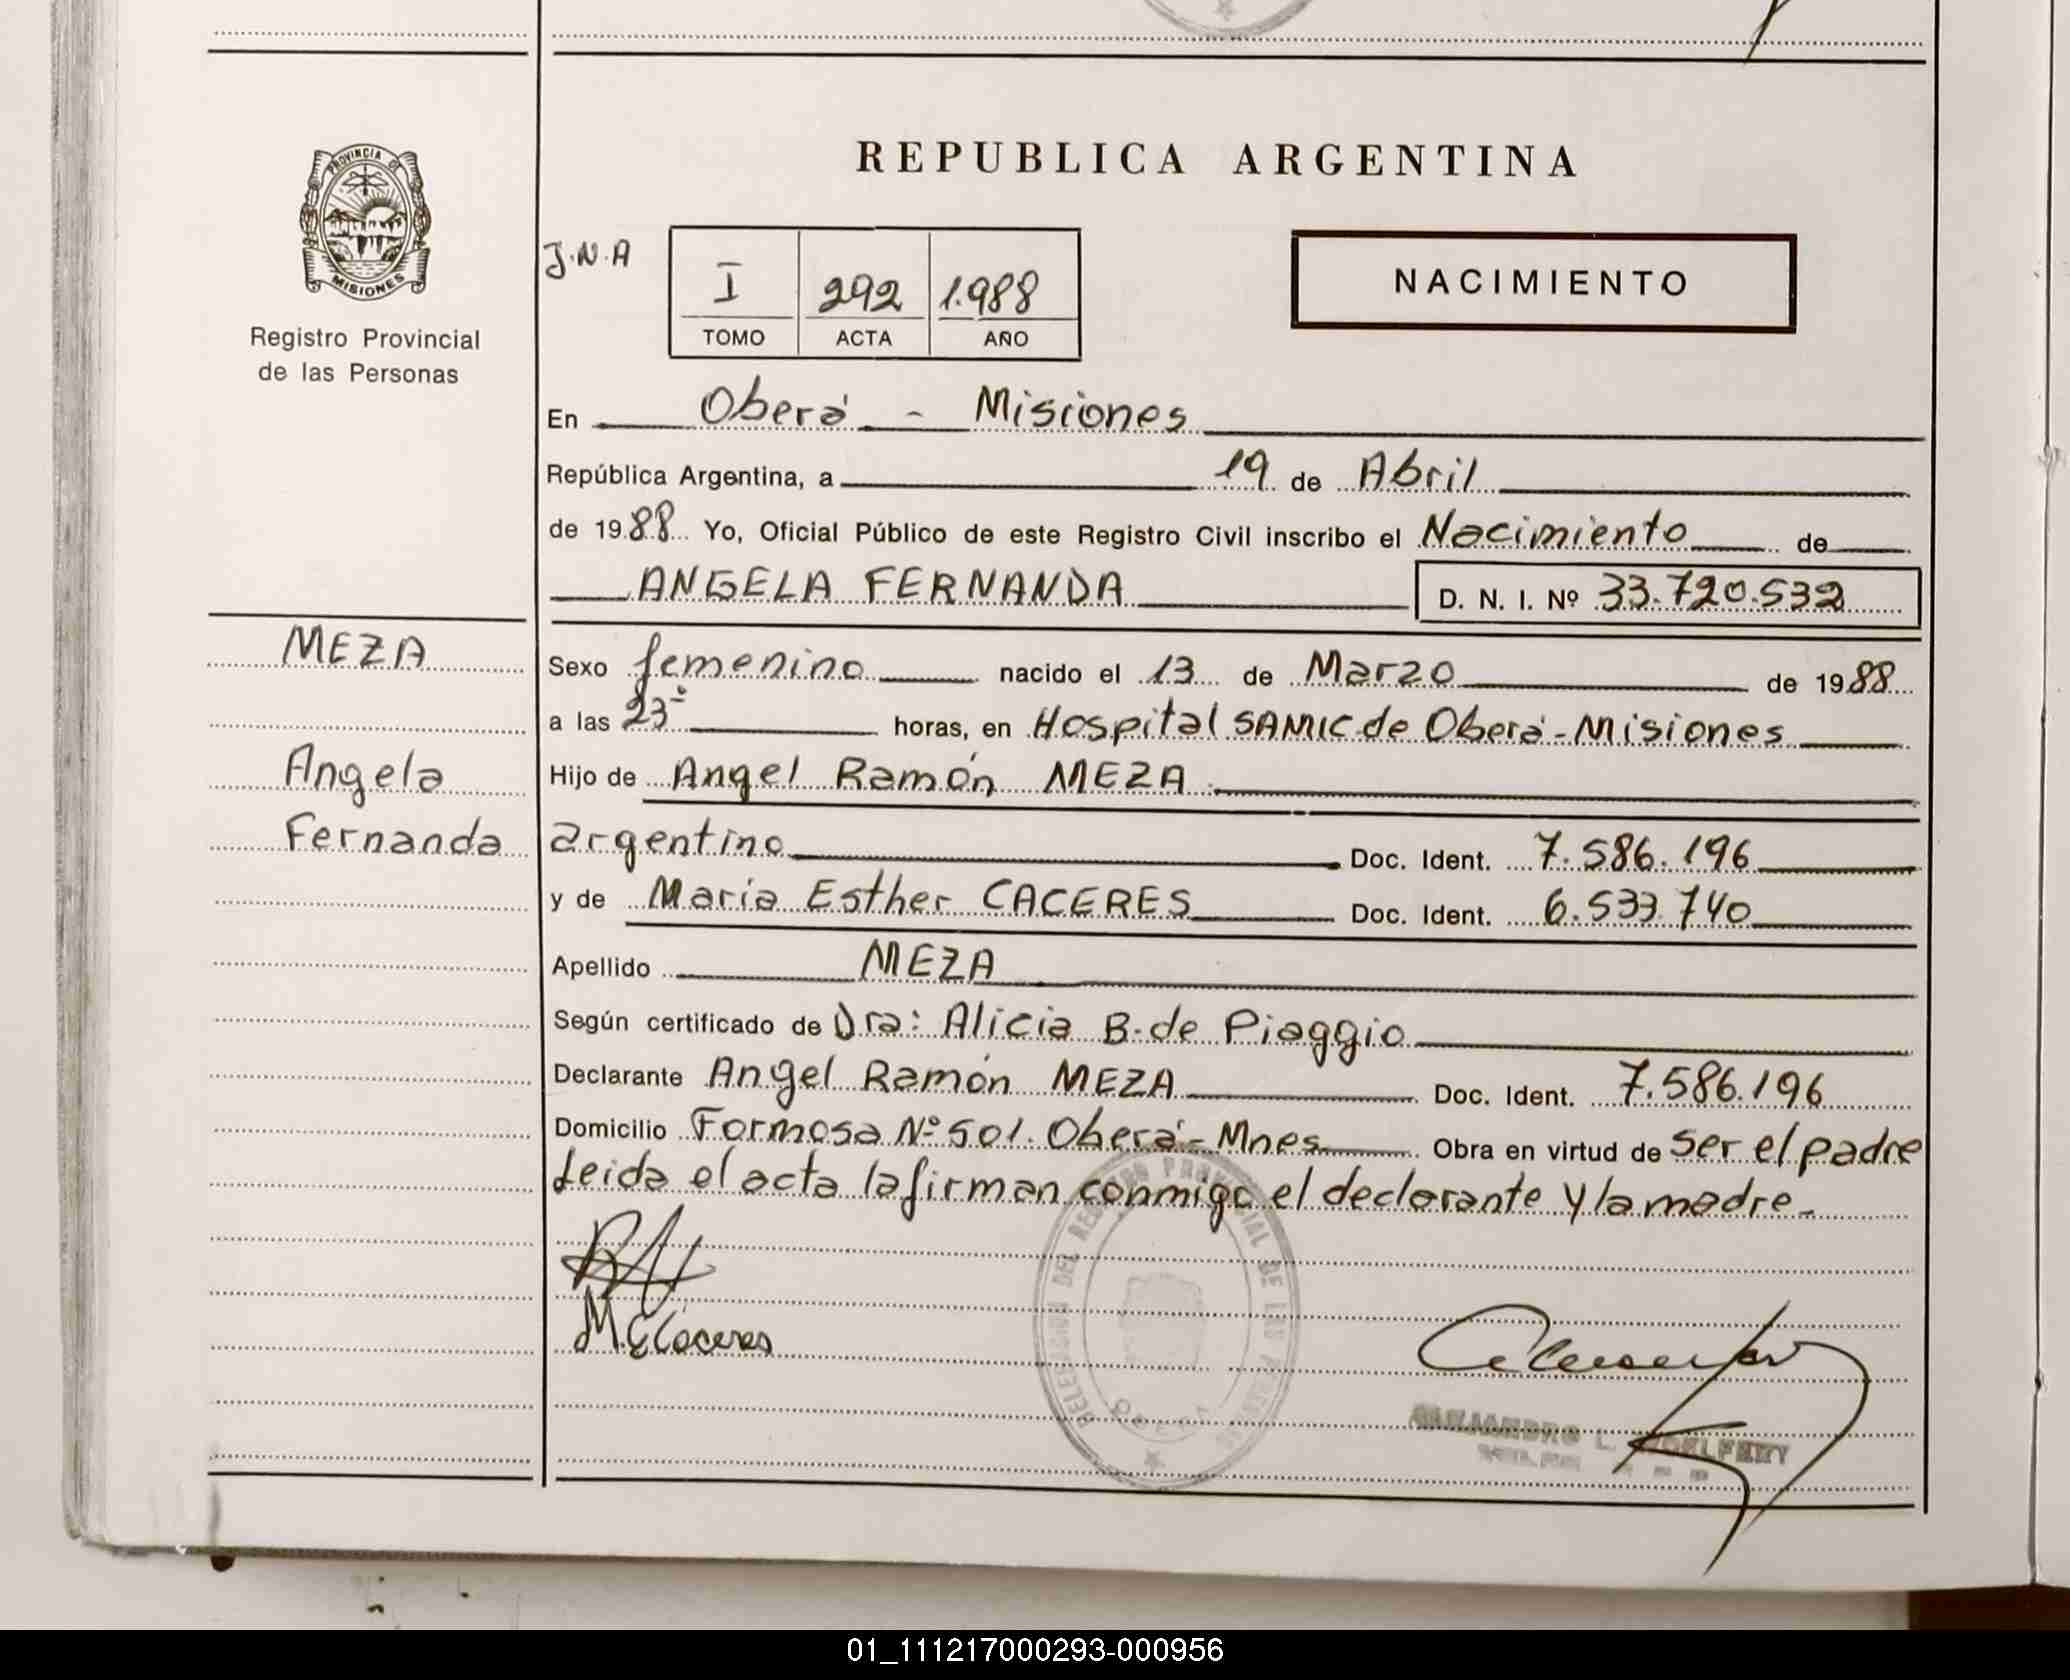 REPUBLICA ARGENTINA
PROVINCIA DE
MISIONES
Registro Provincial
de las Personas
J.N.A
I 292 1.988
TOMO ACTA AÑO
NACIMIENTO
En Oberá - Misiones
República Argentina, a 19 de Abril
de 1988 Yo, Oficial Público de este Registro Civil inscribo el Nacimiento de
ANGELA FERNANDA D. N. I. Nº 33.720.532
MEZA
Angela
Fernanda
Sexo femenino nacido el 13 de Marzo de 1988
a las 23 horas, en Hospital SAMIC de Oberá - Misiones
Hijo de Angel Ramón MEZA
argentino Doc. Ident. 7.586.196
y de Maria Esther CACERES Doc. Ident. 6.533.740
Apellido MEZA
Según certificado de Dra: Alicia B. de Piaggio
Declarante Angel Ramón MEZA Doc. Ident. 7.586.196
Domicilio Formosa Nº 501. Oberá - Mnes Obra en virtud de ser el padre
Leida el acta la firman conmigo el declarante y la madre.
M.E Caceres
DELEGACION DEL REGISTRO PROVINCIAL DE LAS PERSONAS
OBERA
ALEJANDRO L.
01_111217000293-000956